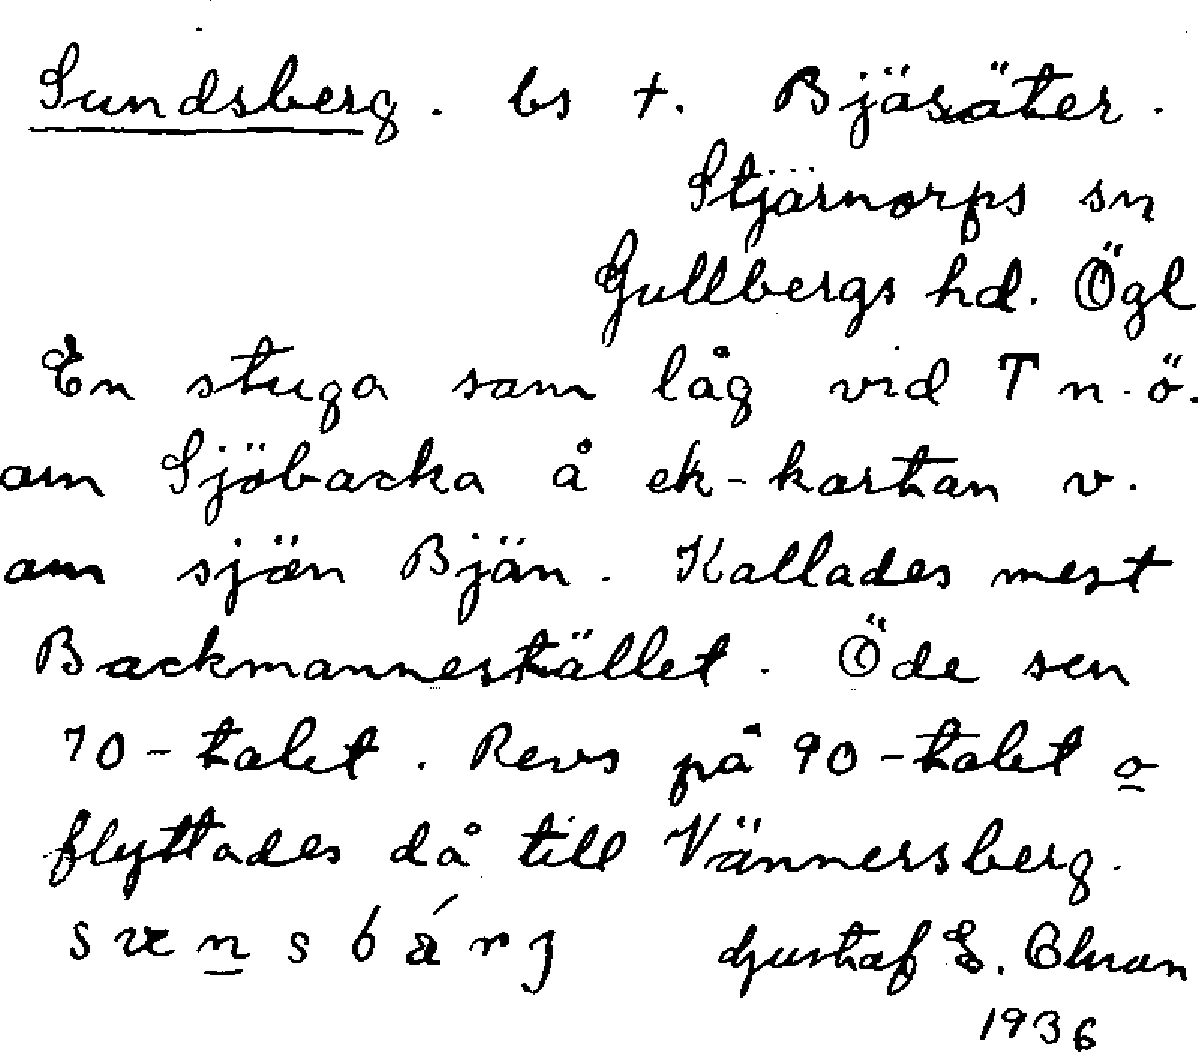 Sundsberg. bs +. Bjäsäter.
Stjärnorps sn
Gullbergs hd. Ögl
En stuga som låg vid T n. ö.
om Sjöbacka å ek-kartan v.
om sjön Bjän. Kallades mest
Backmannestället. Öde sen
70-talet. Revs på 90-talet o
flyttades då till Vännersberg.
Gustaf E.
1936